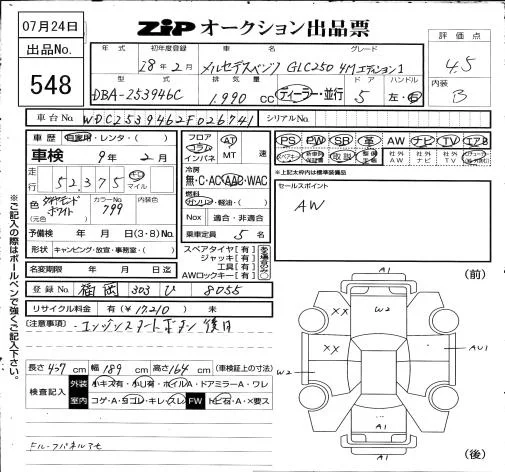 07月24日
ZIP オークション出品票
出品No.
548
評価点
4.5
内装
B
年式 初年度登録 車名 グレード
28年2月 メルセデスベンツ GLC250 4Mエディション1
型式 排気量 ドア ハンドル
DBA-253946C 1,990 cc ディーラー・並行 5 左・右
車台No. WDC2539462F026741 シリアルNo.
車歴 自家用・レンタ・( )
車検 9年2月
走行 52,375 km マイル
色 ダイヤモンドホワイト カラーNo. 799
(元色)
予備検 年 月 日(3・8)No.
形状 キャンピング・放宣・事務室・( )
名変期限 年 月 日迄
フロア コラム インパネ AT MT 速
冷房
無・C・AC・AAC・WAC
燃料
ガソリン・軽油・( )
Nox 適合・非適合
乗車定員 5名
スペアタイヤ[有]
ジャッキ[有]
工具[有]
AWロックキー[有]
PS PW SR 革 AW ナビ TV エアB
*上記太枠内は標準装備品
セールスポイント
AW
登録No. 福岡 303 ひ 8055
リサイクル料金 有(¥17210) 未
(注意事項) ・エンジンスタートボタン後日
長さ437cm 幅189cm 高さ164cm (車検証上の寸法)
検査記入 外装 小キズ有・小凹有・ホイルA・ドアミラーA・ワレ
室内 コゲ・A・ヨゴレ・キレ・スレ FW トビ石・A・×要ス
※ご記入の際はボールペンで強くご記入下さい。
(前)
A1
W2
XX
XX
W2
AU1
A1
(後)